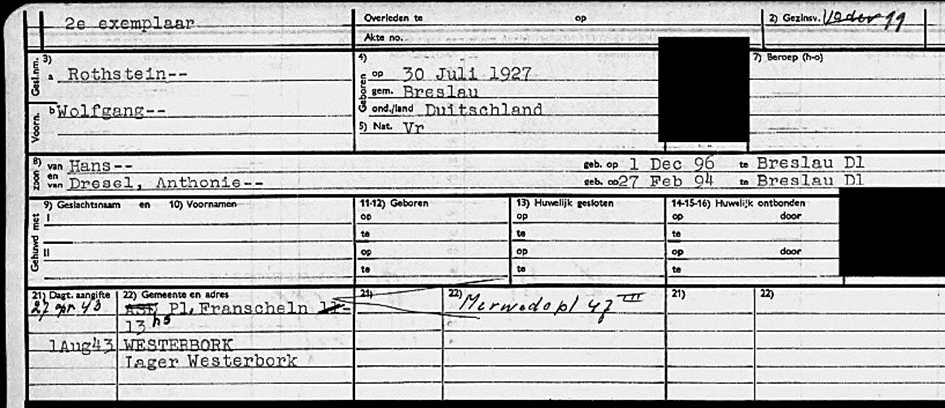 2e exemplaar
Overleden te op
Akte no.
2) Gezinsv. Vader 99
Gesl.nm. 3) a Rothstein--
Voorn. b Wolfgang--
4) Geboren op 30 Juli 1927
gem. Breslau
ond./land Duitschland
5) Nat. Vr
7) Beroep (h-o)
8) zoon van Hans-- geb. op 1 Dec 96 te Breslau Dl
en van Dresel, Anthonie-- geb. op 27 Feb 94 te Breslau Dl
Gehuwd met
9) Geslachtsnaam en 10) Voornamen
I
II
11-12) Geboren
op
te
op
te
13) Huwelijk gesloten
op
te
op
te
14-15-16) Huwelijk ontbonden
op door
te
op door
te
21) Dagt. aangifte 22) Gemeente en adres
27 apr 43 ASD Pl. Franscheln
13 hs
1Aug43 WESTERBORK
Lager Westerbork
21) 22)
Merwedepl 47 III
21) 22)